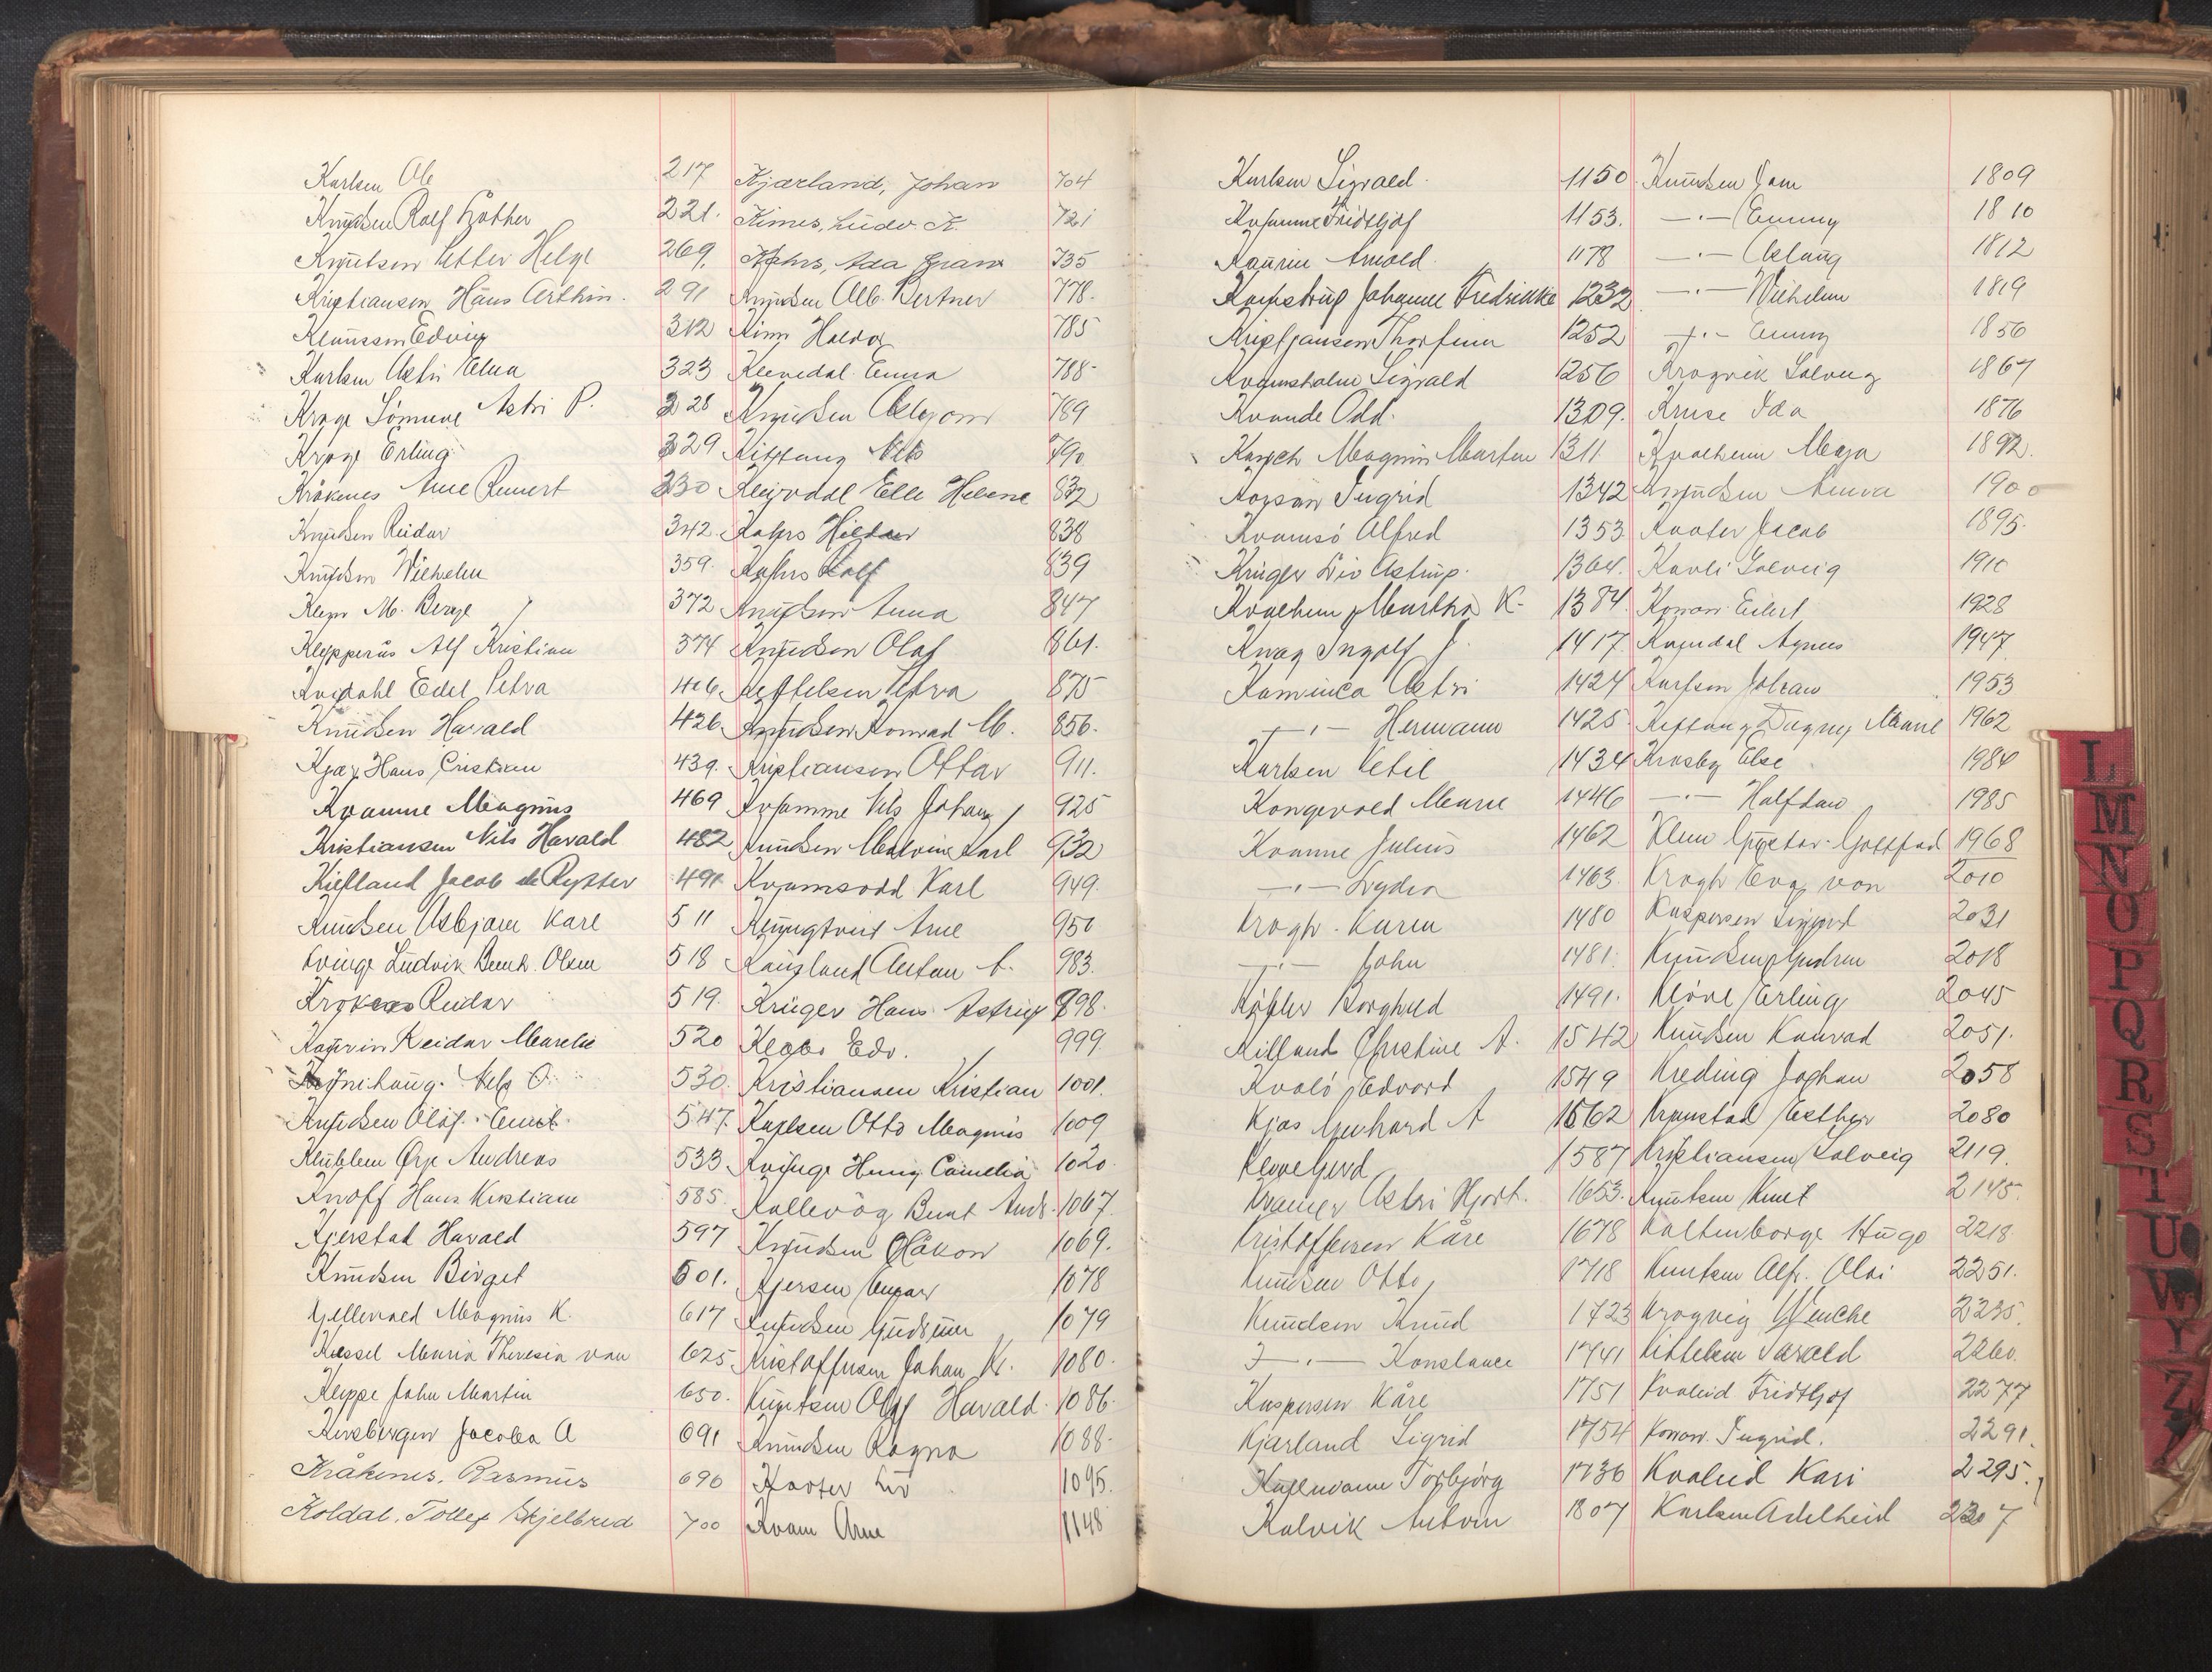 Karlsen Ole 217
Knudsen Rolf Lother 221.
Knutsen Petter Helge 269.
Kristiansen Hans Arthur. 291
Klaussen Edvin 312
Karlsen Astri Elna 323
Krage Sömme Astri P. 328
Krage Erling 329
Kråkenes Arne Reinert 330
Knudsen Reidar 342.
Knudsen Wilhelm 359.
Klepp M. Berge 372
Klepperås Alf Kristian 374
Kvidahl Edel Petra 406
Knudsen Harald 426
Kjær Hans Cristian 439.
Kvamme Magnus 469
Kristiansen Nils Harald 482
Kielland Jacob de Rytter 491
Knudsen Asbjørn Kare 511
Kvinge Ludvik Bernh. Olson 518
Kroknes Reidar 519.
Kaurin Reidar Marelie 520
Nils O. 530.
Knudsen Olaf Emil. 547.
Andreas 533
Knoff Hans Kristian 585.
Kjerstad Harald 597
Knudsen Birget 601.
Kjellevold Magnus K. 617
Kessel Maria Theresia van 625
Kleppe John Martin 650.
Kinsbergen Jacoba A 691
Kråkenes, Rasmus 690
Koldal, Tollef Skjelbred 700
Kjærland, Johan 704
Kimes, Ludv. K. 721
Kahrs, Ada Grans 735
Knudsen Alb. Bertner 778.
Kinn Haldor 785
Kleivdal Emma 788-
Knudsen Asbjørn 789
Kittang Nils 790
Kleivdal Elle Helene 832
Kahrs Hildur 838
Kahrs Rolf 839
Knudsen Anna 847
Knudsen Olaf 861.
Kettelsen Petra 875
Knudsen Konrad M. 856.
Kristiansen Ottar 911.
Kvamme Nils Johan 925
Knudsen Malvin Karl 932
Kvamsodd Karl 949.
Klungtveit Arne 950
Kausland Anton A. 983.
Krüger Hans Astrup 998.
Edv. 999.
Kristiansen Kristian 1001.
Karlsen Otto Magnus 1009
Kvinge Henny Camelia 1020.
Kallevåg Bernt Andr. 1067.
Knudsen Håkon 1069.
Kjersem Ingvar 1078
Knudsen Gudrun 1079
Kristoffersen Johan Kr. 1080.
Knutsen Olaf Harald. 1086.
Knudsen Ragna 1088-
Kaster Liv 1095.
Kvam Arne 1148
Karlsen Sigvald. 1150.
Kvamme Fridtjof 1153.
Kaurin Arnold. 1178
Kampstrup Johanne Fredrikke 1232
Kristjansen Thorfinn 1252
Kvamsholm Sigvald 1256
Kvande Odd. 1309.
Magnus Martin 1311.
Korsan Ingrid 1342
Kvamsö Alfred 1353
Krüger Liv Astrup. 1364.
Kvalheim Martha K. 1384.
Kvag Ingolf J. 1417.
Kaminca Astri 1424
— " — Hermann 1425.
Karlsen Ketil 1434
Kongevold Marie 1446
Kvamme Julius 1462
— " — Lydia 1463
Krogh. Karen 1480
— " — John 1481.
Köhler Borghild 1491.
Killand Christine A. 1542
Kvalö Edvard 1549
Kjos Gerhard A 1562
Kleppe Gerd 1587
Kramer Astri Hjort. 1653.
Kristoffersen Kåre 1678
Knudsen Otto 1718
Knudsen Knud 1723
— " — Konstance 1741
Kaspersen Kåre 1751
Kjærland Sigrid 1754
Torbjörg 1736
Kalvik Antoni 1807
Knudsen Jan 1809
— " — Emmy 1810
— " — Aslaug 1812
— " — Wilhelm 1819
— " — Emmy 1856
Krogvik Solveig 1867
Kruse Ida 1876
Kvalheim Maja 1892.
Knudsen Minva 1900
Kaater Jacob 1895.
Kavli Solveig 1910
Eilert 1928
Agnes 1947
Karlsen Johan 1953
Kittang Dagny Marie 1962
Krosby Else 1984
— " — Halfdan 1985
Klem Gustav Gottfred 1968
Krogh Eva von 2010
Kaspersen Sigurd 2031
Knudsen Gudrun 2018
Klöve Erling 2045
Knudsen Konrad 2051.
Kreding Johan 2058
Krunstad Esther 2080
Kristiansen Solveig 2119.
Knutsen Knut 2145.
Kaltenborge Hugo 2218
Knutsen Alfr. Olai 2251.
Krogvig Wenche 2235.
Kittelsen Harald 2260.
Kvaleid Fridtjof 2277
Ingrid. 2291.
Kvaleid Kari 2295.
Karlsen Adelheid 2307
L
M
N
O
P
Q
R
S
T
U
W
Y
Z